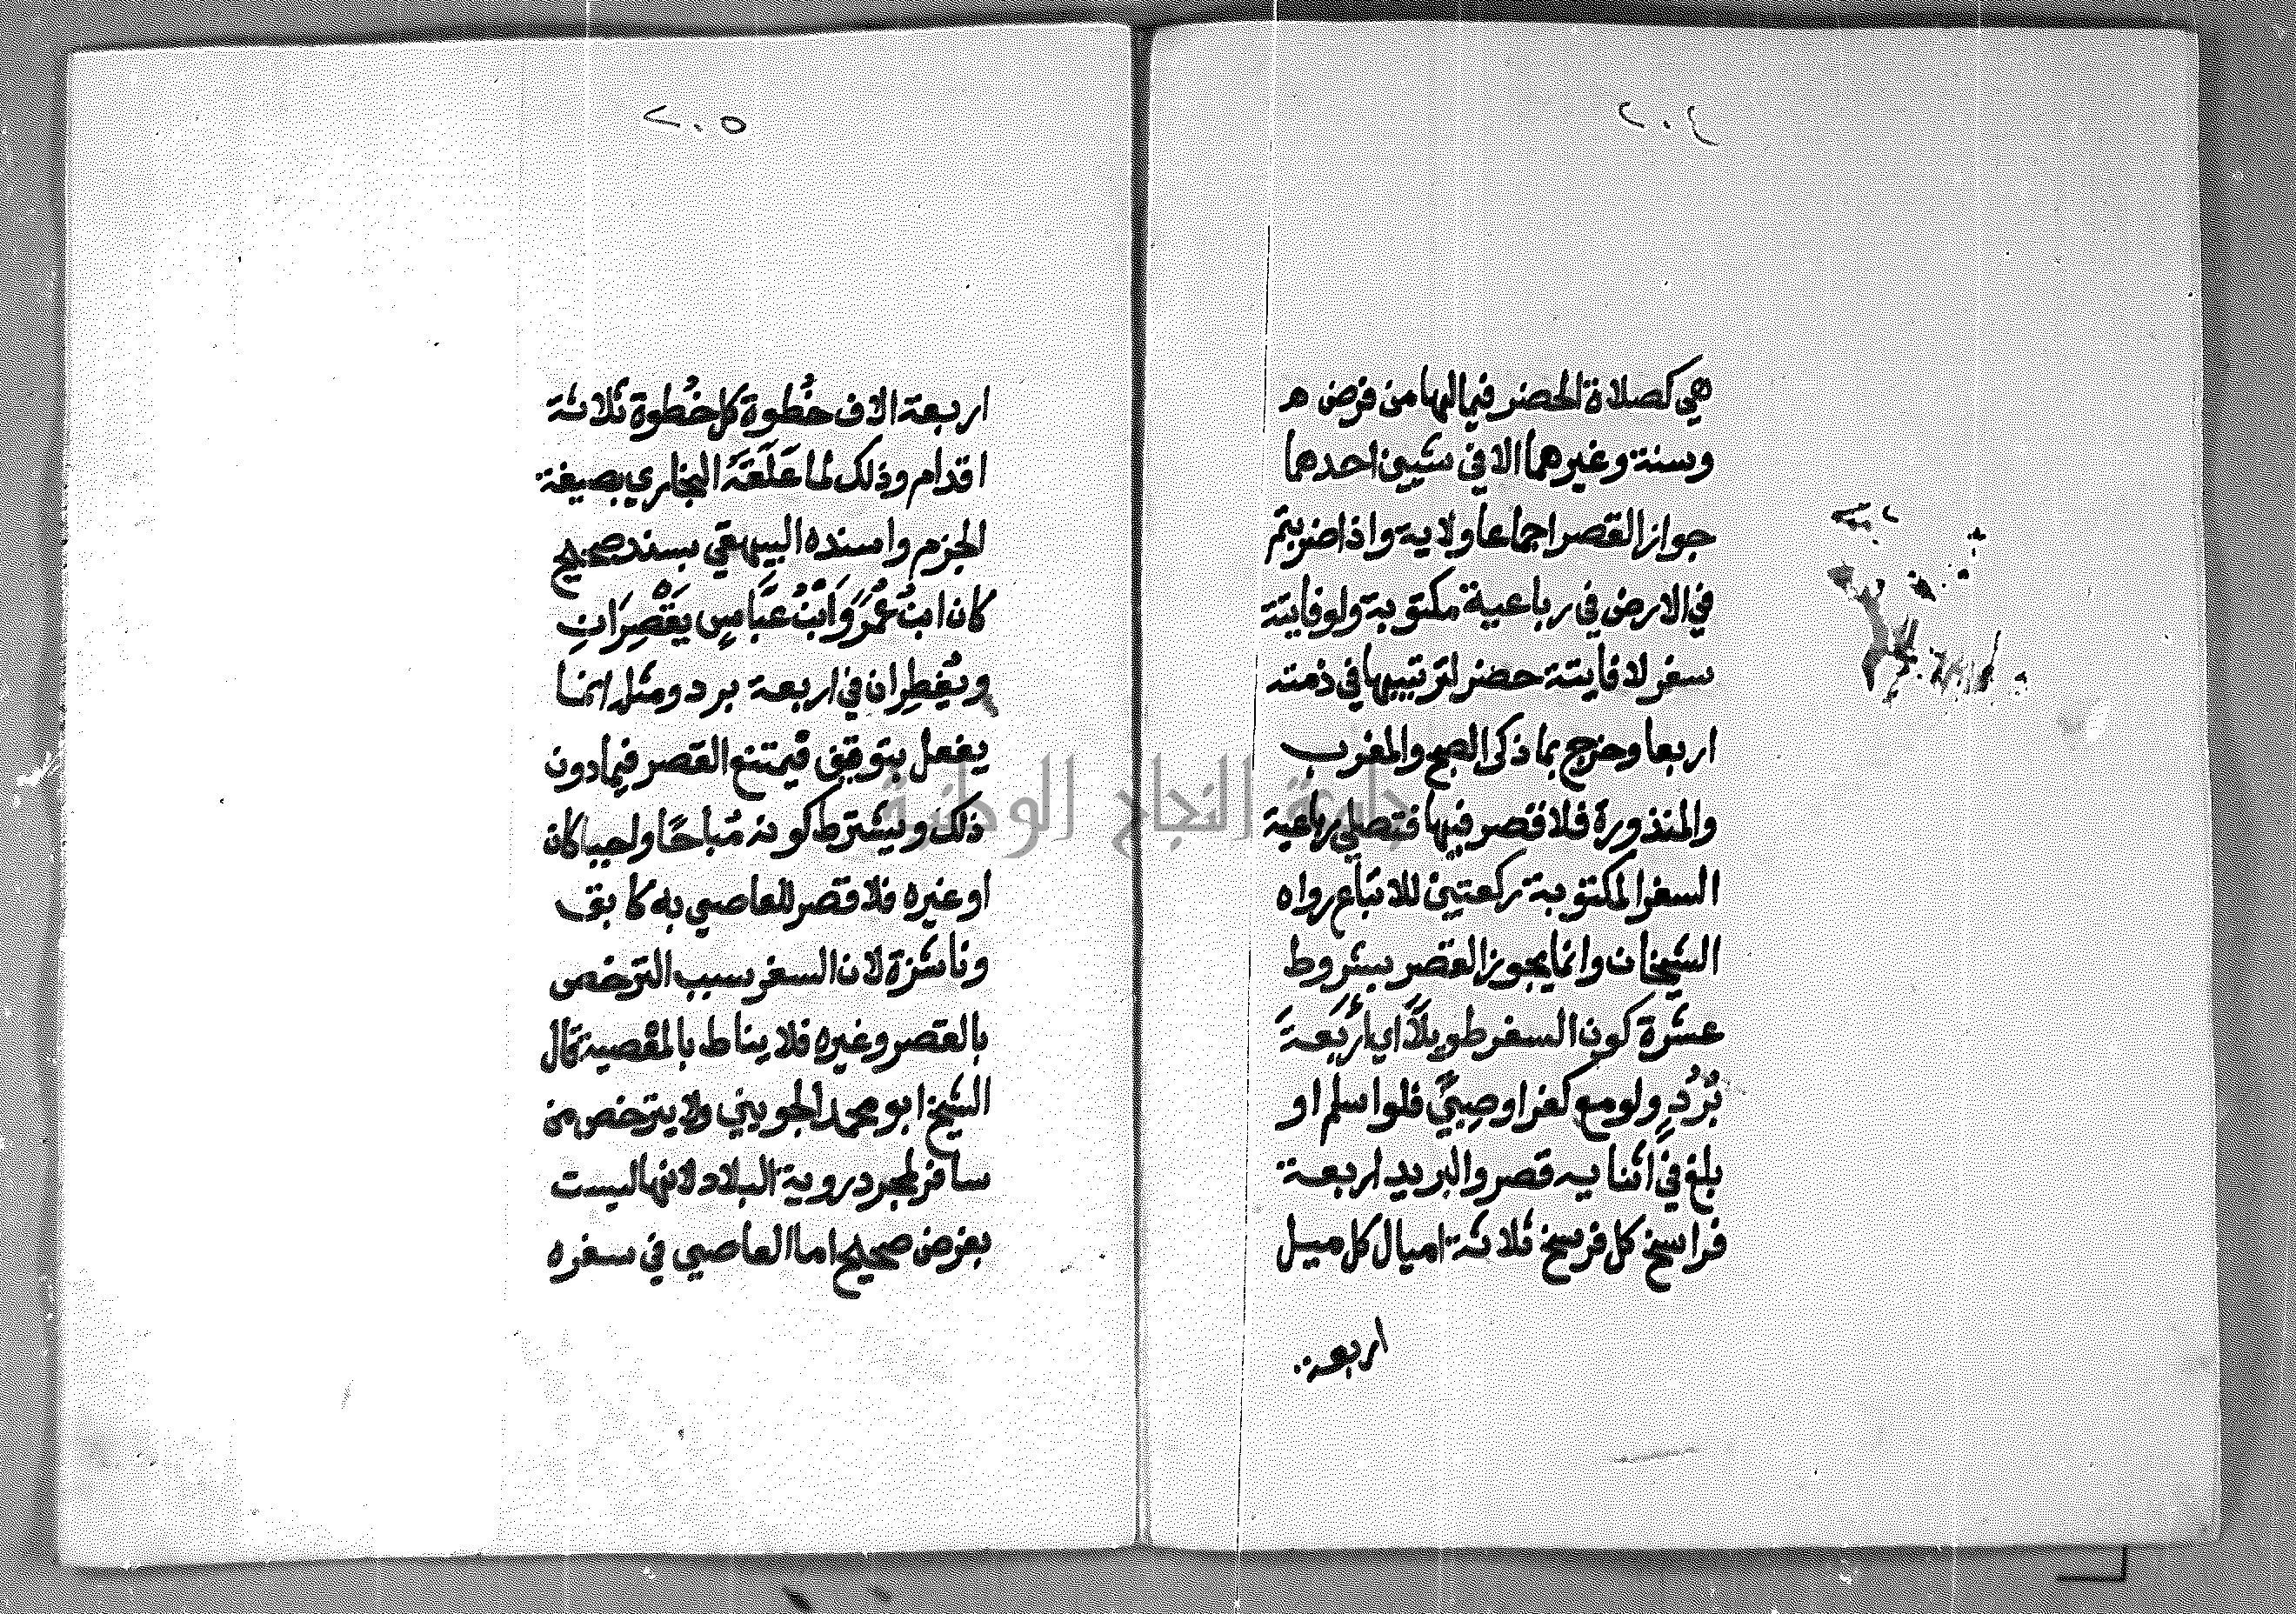 هي كصلاة الحضر فيما لها من فرض ه
وسنة وغيرهما الا في شيين احدهما
جواز القصر اجماعا ولاية واذا ضربتم
في الارض في رباعية مكتوبة ولو فايتة
سفر لا فايتة حضر لترتيبها في ذمته
اربعا وخرج بما ذكر الصبح والمغرب
والمنذورة فلا قصر فيها فتصلى رباعية
السفر المكتوبة ركعتين للاتباع رواه
الشيخان وانما يجوز القصر بشروط
عشرة كون السفر طويلاً اي اربعة
بُرُدٍ ولو مع كفر او صبيً فلو اسلم او
بلغ في اثنايه قصر والبريد اربعة
فراسخ كل فرسخ ثلاثة اميال كل ميل
اربعة
اربعة الاف خُطوة كل خُطوة ثلاثة
اقدام وذلك لما عَلَّقَهُ البخاري بصيغة
الجزم واسنده البيهقي بسند صحيح
كان ابنُ عُمَرَ وَابْنُ عَبَّاسٍ يَقْصِرَانِ
ويُفْطِرَان في اربعة برد ومثله انما
يفعل بتوقيف فيمتنع القصر فيما دون
ذلك ويشترط كونه مُبَاحًا واجبا كان
او غيره فلا قصر للعاصي به كابق
وناشزة لان السفر سبب الترخص
بالقصر وغيره فلا يناط بالمعصية قال
الشيخ ابو محمد الجويني ولا يترخص من
سافر لمجرد روية البلاد لانها ليست
بغرض صحيح اما العاصي في سفره
جامعة النجاح الوطنية